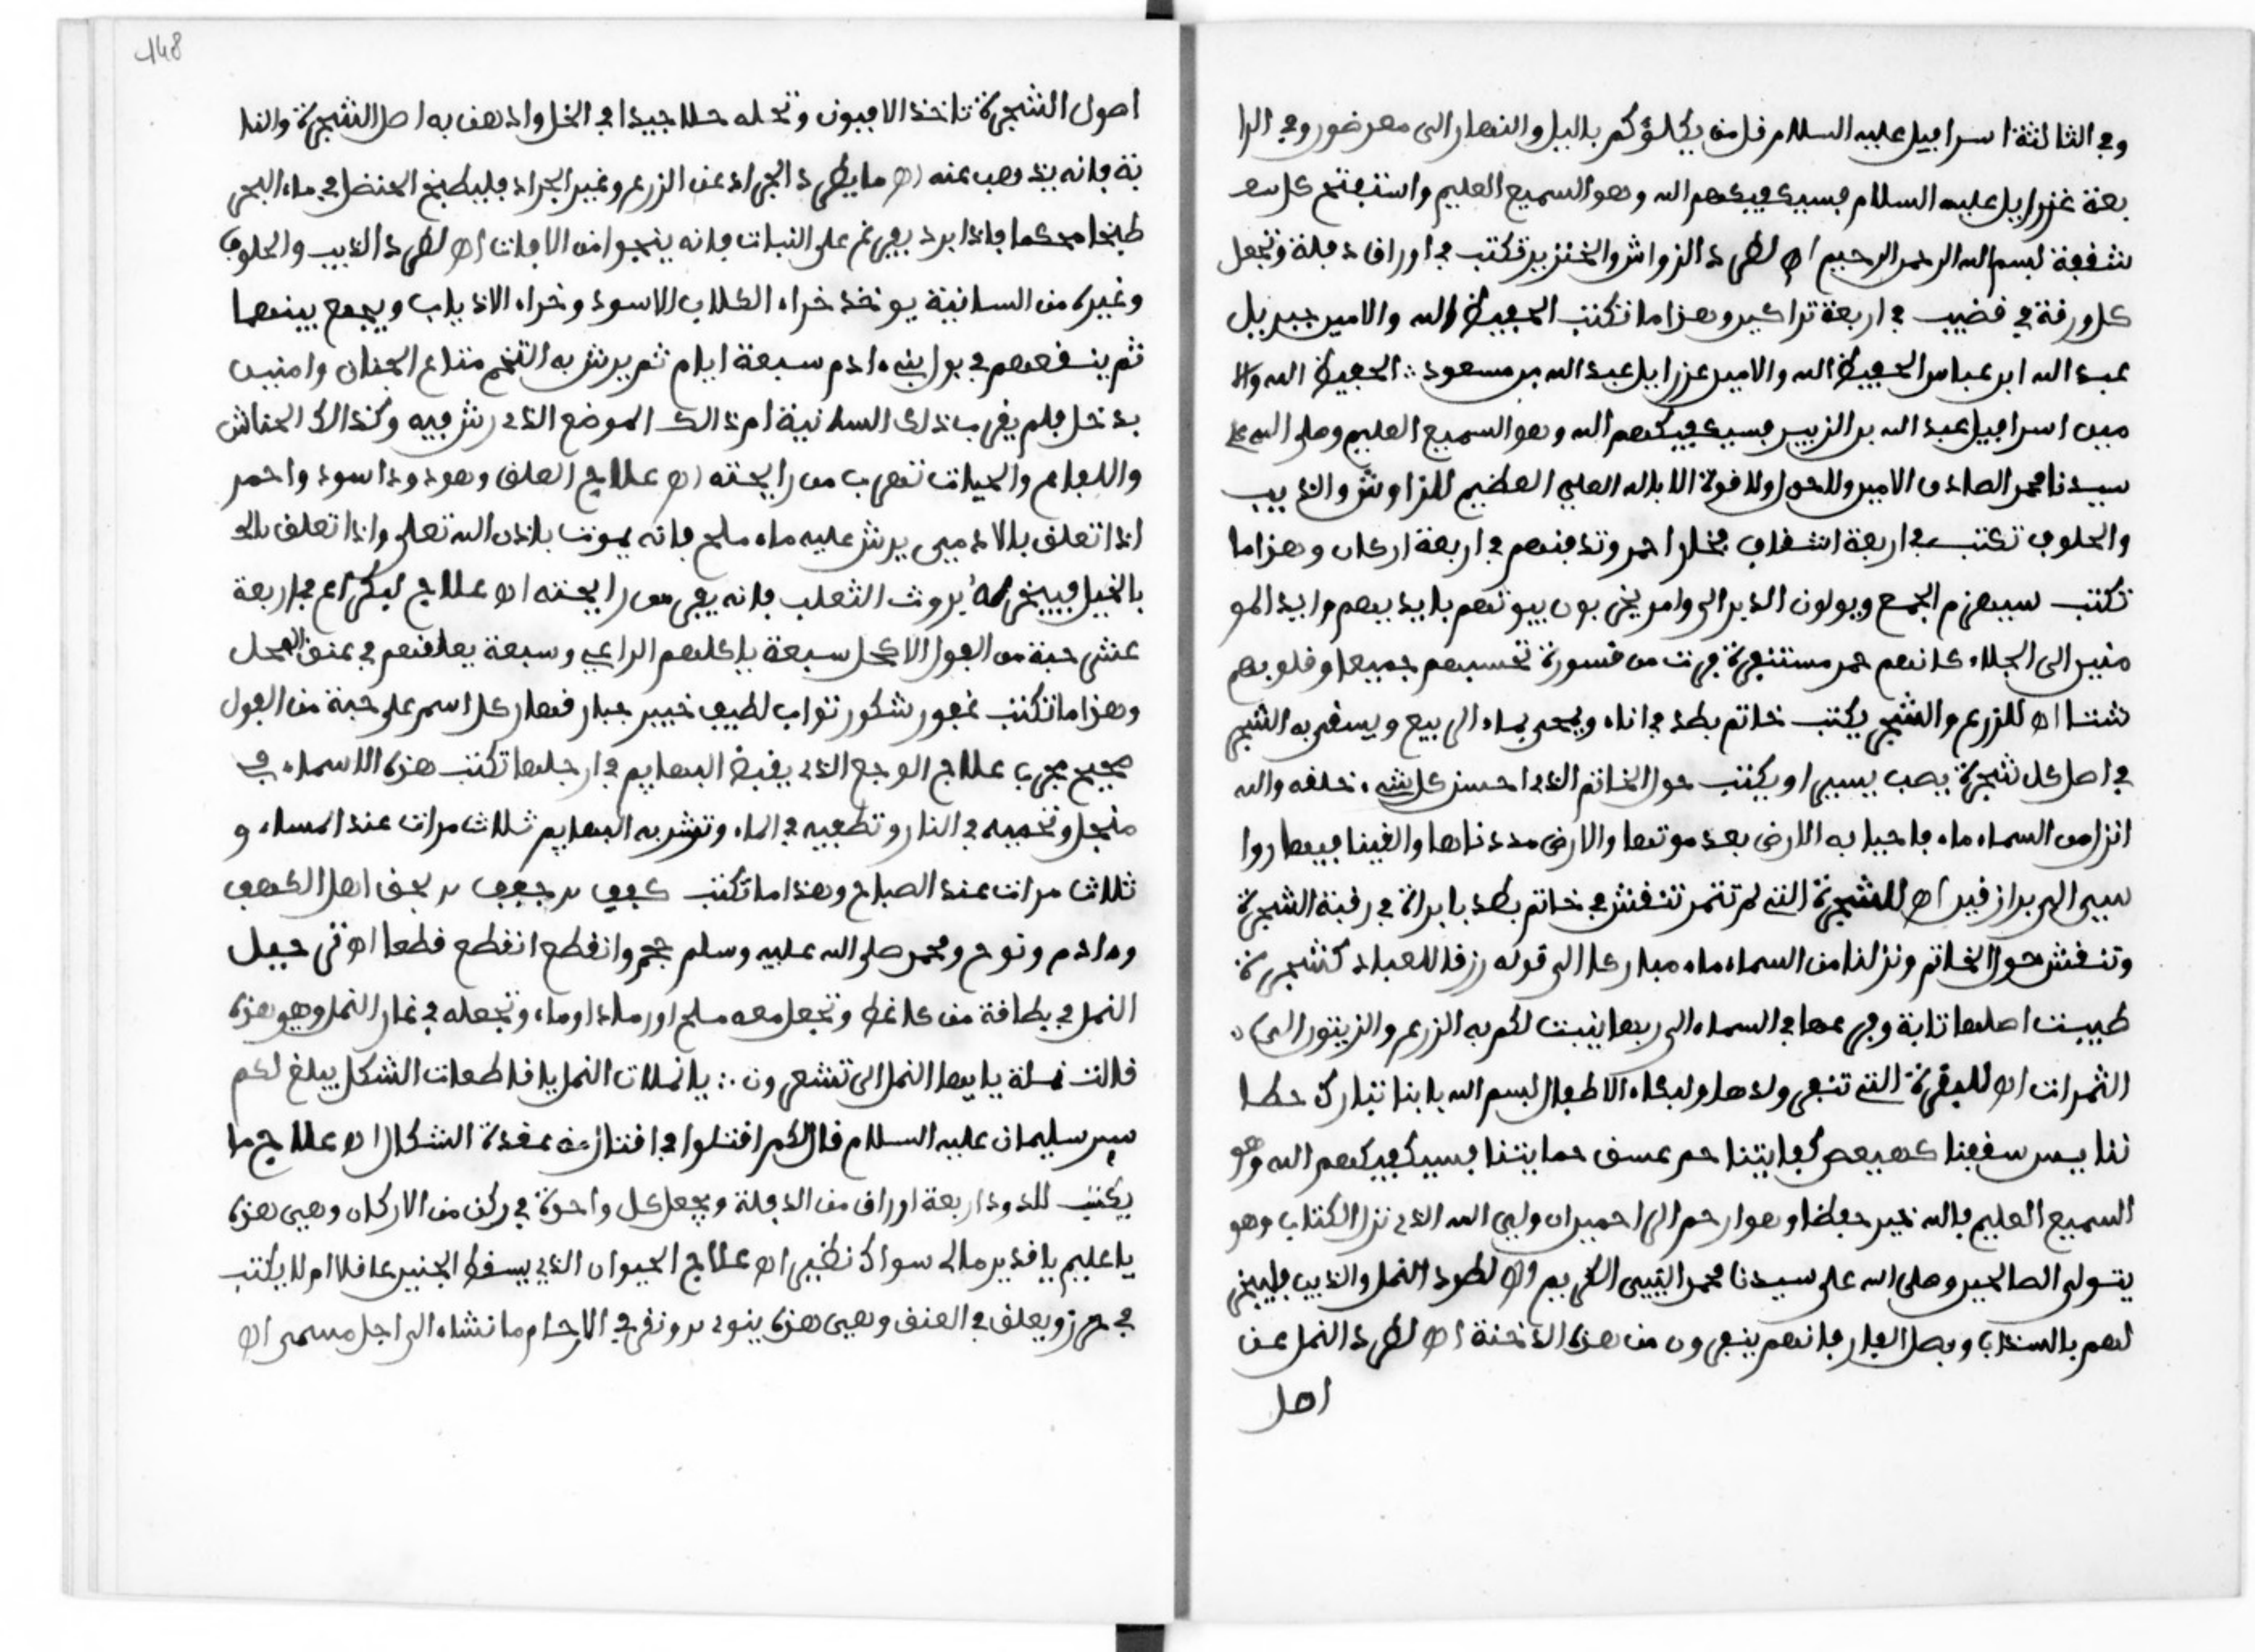 وفي الثالثة اسرافيل عليه السلام قل من يكلؤكم بالليل والنهار الى معرضون وفي الرا
بعة عزرايل عليه السلام فسيكفيكهم الله وهو السميع العليم واستفتح كل
شقفة بسم الله الرحمن الرحيم اه لطرد الزواش والخنزير تكتب في اوراق دفلة وتجعل
كل ورقة في قضيب في اربعة تراكيز وهذا ما تكتب الحفيظ الله والامين جبريل
عبد الله ابن عباس الحفيظ الله والامين عزرايل عبد الله بن مسعود ∴ الحفيظ الله والا
مين اسرافيل عبد الله بن الزبير فسيكفيكهم الله وهو السميع العليم وصلى الله على
سيدنا محمد الصادق الامين ولا حول ولا قوة الا بالله العلي العظيم للزاوش والذيب
والحلوف تكتب في اربعة اشقاف فخار احمر وتدفنهم في اربعة اركان وهذا ما
تكتب سيهزم الجمع ويولون الدبر الى وامر يخربون بيوتهم بايديهم وايد المو
منين الى الجلاء كانهم حمر مستنفرة فرت من قسورة تحسبهم جميعا وقلوبهم
شتا اه للزرع والشجر يكتب خاتم بطد في اناء ويمحى بماء الربيع ويسقى به الشجر
في اصل كل شجرة يصب يسيرا ويكتب حول الخاتم الذي احسن كل شيء خلقه والله
انزل من السماء ماء فاحيا به الارض بعد موتها والارض مددناها والقينا فيها روا
سي الى برازقين اه للشجرة التي لم تثمر تنقش في خاتم بطد بابراة في رقبة الشجرة
وتنقش حول الخاتم ونزلنا من السماء ماء مباركا الى قوله رزقا للعباد كشجرة
طيبت اصلها ثابة وفرعها في السماء الى ربها ينبت لكم به الزرع والزيتون الى
الثمرات اه للبقرة التي تنفر ولدها ولبكاء الاطفال بسم الله بابنا تبارك حيطا
ننا يس سقفنا كهيعص كفايتنا حم عسق حمايتنا فسيكفيكهم الله وهو
السميع العليم فالله خير حفظا وهو ارحم الراحمين ان وليي الله الذي نزل الكتاب وهو
يتولى الصالحين وصلى الله على سيدنا محمد النبيي الكريم اه لطرد النمل والذيب فليبخر
لهم بالسنداب وبصل الفار فانهم ينفرون من هذه الدخنة اه لطرد النمل عن
اصل
148
اصول الشجرة تاخذ الافيون وتحله حلا جيدا في الخل وادهن به اصل الشجرة والنبا
تة فانه يذهب عنه اه ما يطرد الجراد عن الزرع وغير الجراد فليطبخ الحنضل في ماء البحر
طبخا محكما فاذا برد يفرغ على النبات فانه ينجوا من الافات اه لطرد الذيب والحلوف
وغيره من السانية يوخذ خراء الكلاب الاسود وخراء الاذياب ويجمع بينهما
ثم ينقعهم في بول بني ءادم سبعة ايام ثم يرش به التخم متاع الجنان وامنين
يدخل فلم يقرب ذلك السانية ام ذالك الموضع الذي رش فيه وكذالك الحناش
واللفاع والحيات تهرب من رايحته اه علاج العلق وهو دود اسود واحمر
اذا تعلق بالادميي يرش عليه ماء ملح فانه يموت باذن الله تعلى واذا تعلق بالد
بالخيل فيبخر له بروث الثعلب فانه يفر من رايحته اه علاج لبكراع فاربعة
عشر حبة من الفول الاكحل سبعة ياكلهم الراعي وسبعة يعلقهم في عنق الفحل
وهذا ما تكتب غفور شكور تواب لطيف خبير جبار قهار كل اسم على حبة من الفول
صحيح مجرب علاج الوجع الذي يقبض البهايم في ارجلها تكتب هذه الاسماء في
منجل وتحميه في النار وتطفيه في الماء وتشربه البهايم ثلاث مرات عند المساء و
ثلاث مرات عند الصباح وهذا ما تكتب كفف در جفف در بحق اهل الكهف
وءادم ونوح ومحمد صلى الله عليه وسلم حجر وانقطع انقطع قطعا اه في جبل
النمل في بطاقة من كاغط وتجعل معه ملح اورماد اوماء وتجعله في غار النمل وهو هذه
قالت نملة يا يها النمل الى تشعرون ∴ يا نملات النمل يا قاطعات الشكل يبلغ لكم
سير سليمان عليه السلام قال لكم اقتلوا في اقتلز عن عقدة الشكال اه علاج ما
يكتب للدود اربعة اوراق من الدفلة ويجعل كل واحدة في ركن من الاركان وهي هذه
يا عليم يا قدير مالي سواك نظير اه علاج الحيوان الذي يسقط الجنين عاقلا ام لا يكتب
في حرز ويعلق في العنق وهي هذه ينود در ونقر في الارحام ما نشاء الى اجل مسمى اه